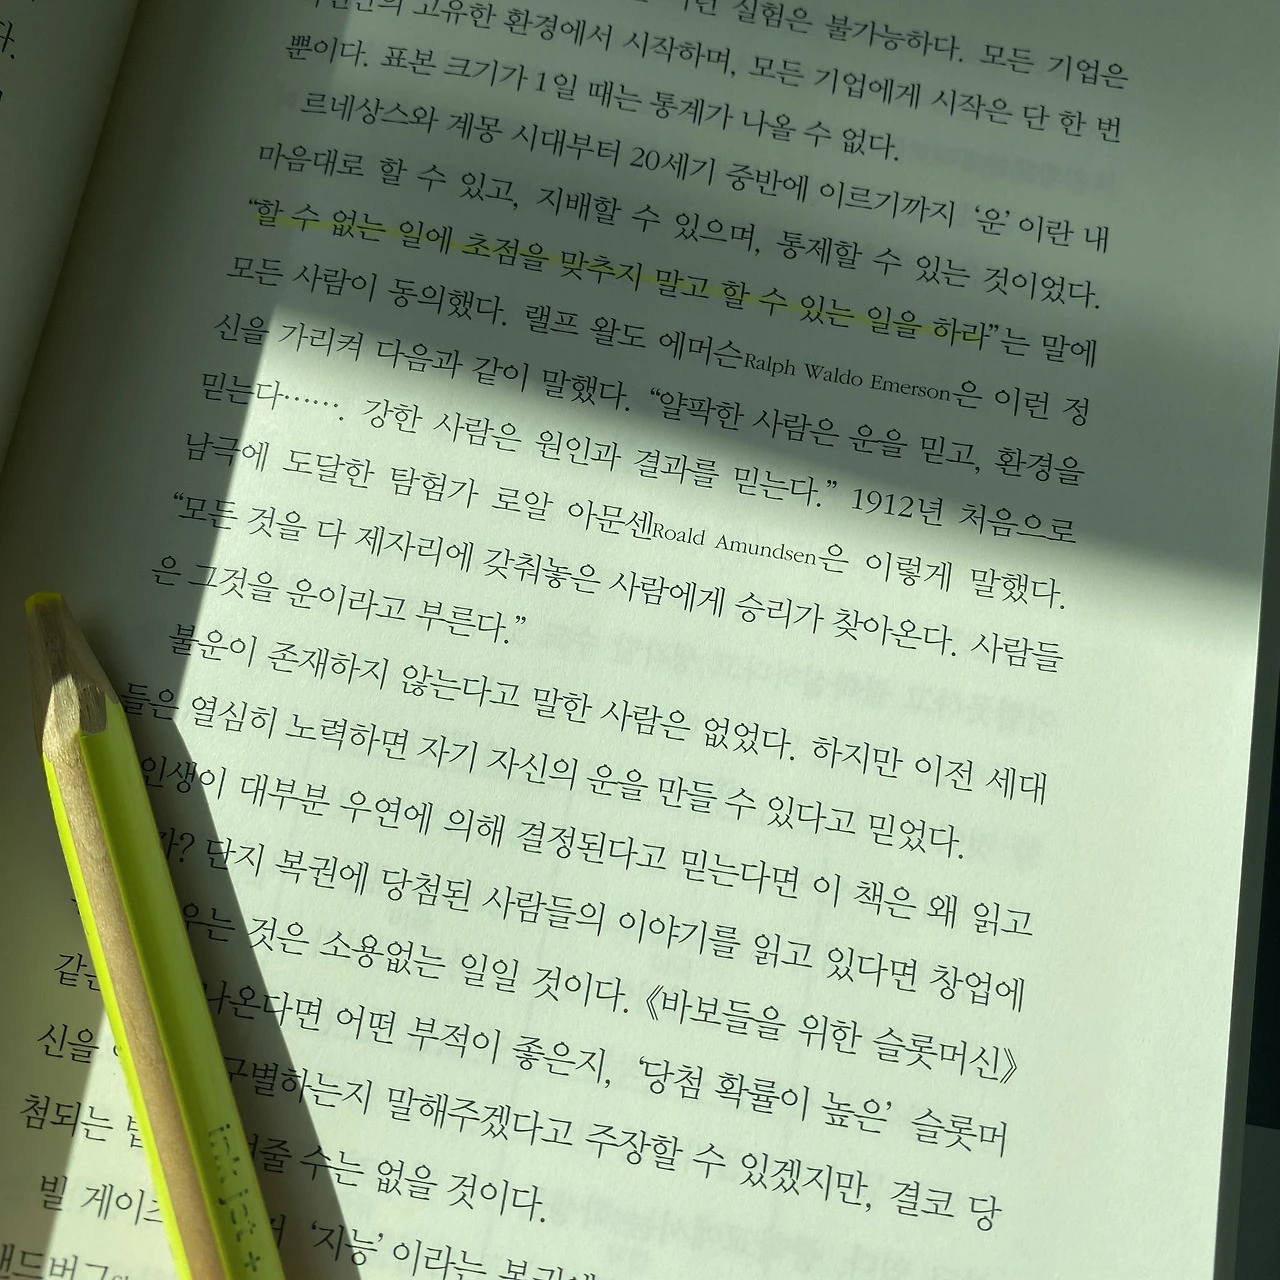 실험은 불가능하다. 모든 기업은
고유한 환경에서 시작하며, 모든 기업에게 시작은 단 한 번
뿐이다. 표본 크기가 1일 때는 통계가 나올 수 없다.
르네상스와 계몽 시대부터 20세기 중반에 이르기까지 ‘운’이란 내
마음대로 할 수 있고, 지배할 수 있으며, 통제할 수 있는 것이었다.
“할 수 없는 일에 초점을 맞추지 말고 할 수 있는 일을 하라”는 말에
모든 사람이 동의했다. 랠프 왈도 에머슨Ralph Waldo Emerson은 이런 정
신을 가리켜 다음과 같이 말했다. “얄팍한 사람은 운을 믿고, 환경을
믿는다……. 강한 사람은 원인과 결과를 믿는다.” 1912년 처음으로
남극에 도달한 탐험가 로알 아문센Roald Amundsen은 이렇게 말했다.
“모든 것을 다 제자리에 갖춰놓은 사람에게 승리가 찾아온다. 사람들
은 그것을 운이라고 부른다.”
불운이 존재하지 않는다고 말한 사람은 없었다. 하지만 이전 세대
들은 열심히 노력하면 자기 자신의 운을 만들 수 있다고 믿었다.
인생이 대부분 우연에 의해 결정된다고 믿는다면 이 책은 왜 읽고
단지 복권에 당첨된 사람들의 이야기를 읽고 있다면 창업에
것은 소용없는 일일 것이다. 《바보들을 위한 슬롯머신》
나온다면 어떤 부적이 좋은지, ‘당첨 확률이 높은’ 슬롯머
신을 구별하는지 말해주겠다고 주장할 수 있겠지만, 결코 당
첨되는 수는 없을 것이다.
빌 ‘지능’이라는